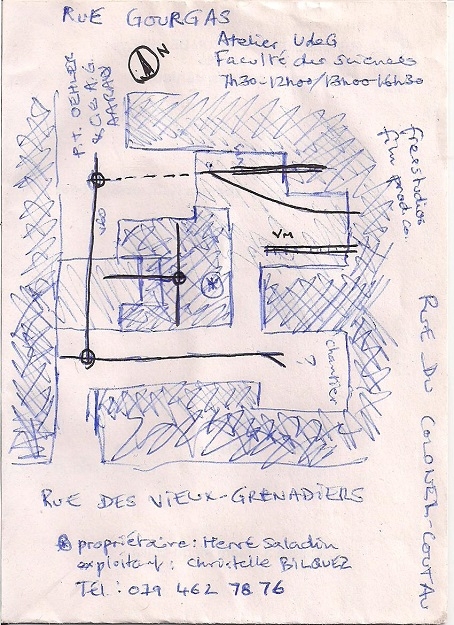 RUE GOURGAS
N
Atelier UdeG
Faculté des sciences
7h30-12h00/13h00-16h30
P.T. OEHLER
& CIE A.G.
AARAU
freestudios
film prod co.
VM
?
chantier
RUE DU COLONEL-COUTAU
RUE DES VIEUX-GRENADIERS
* propriétaire: Hervé Saladin
exploitant: Christelle BILQUEZ
Tél.: 079 462 78 76